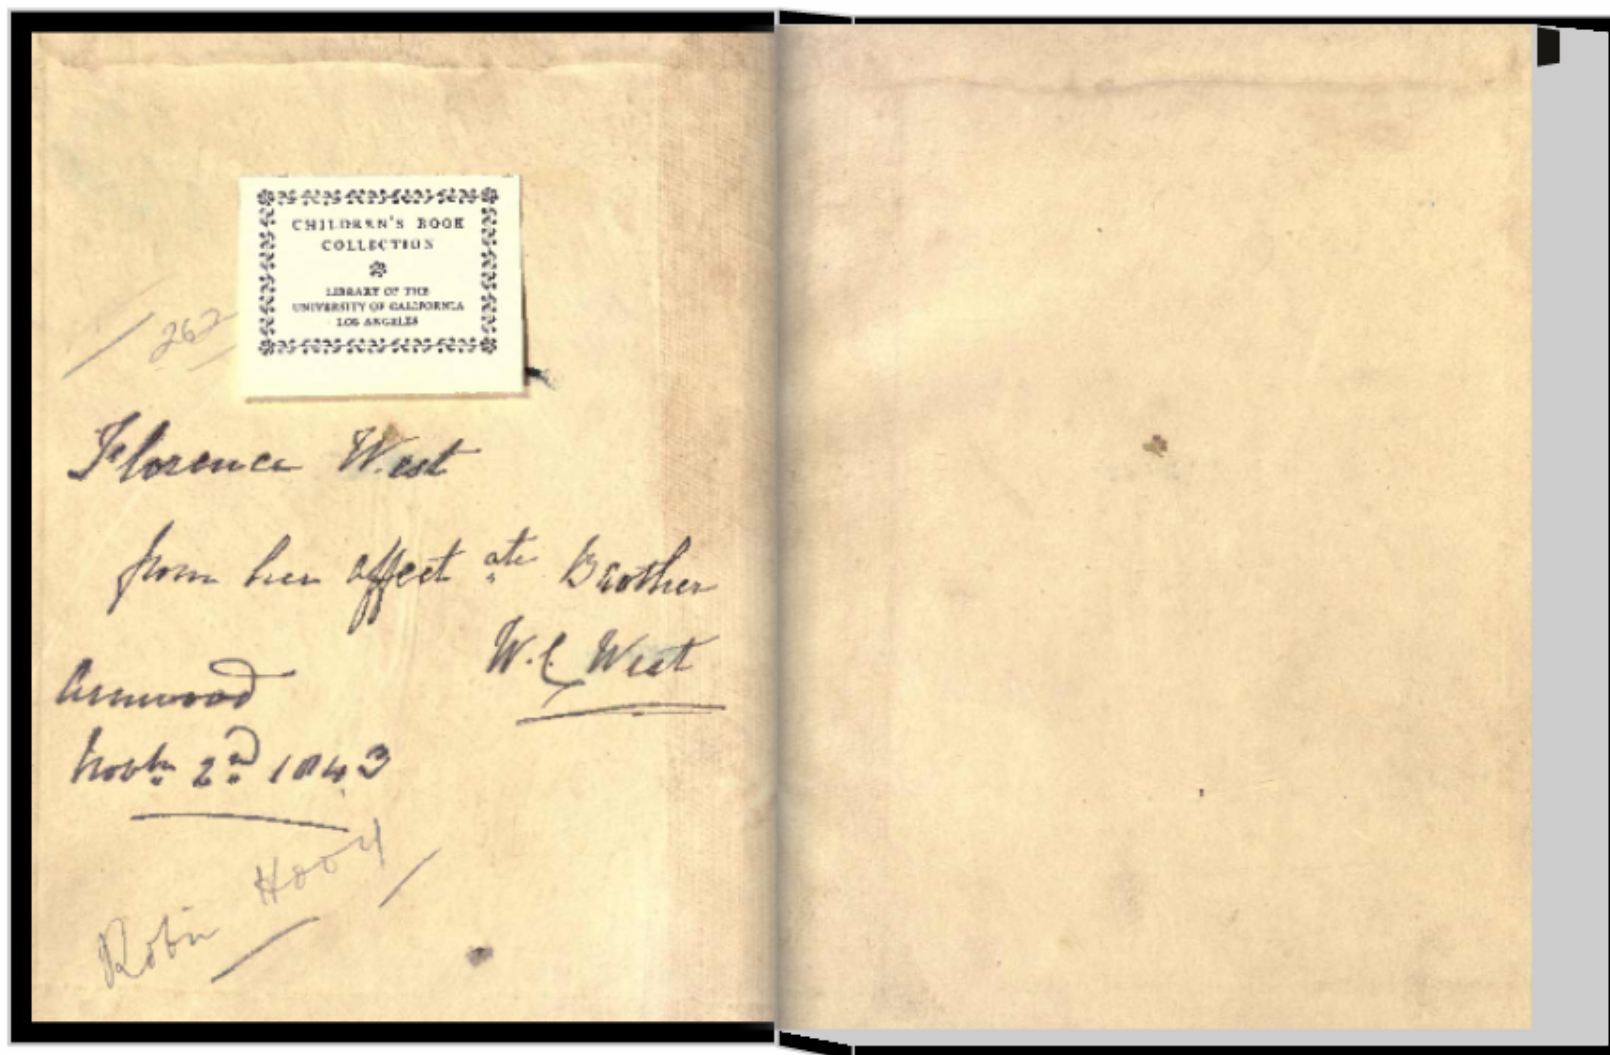 CHILDREN'S BOOK
COLLECTION
LIBRARY OF THE
UNIVERSITY OF CALIFORNIA
LOS ANGELES
262
Florence West
from her affect ate Brother
W.C. West
Novbr 2nd 1843
Robin Hood